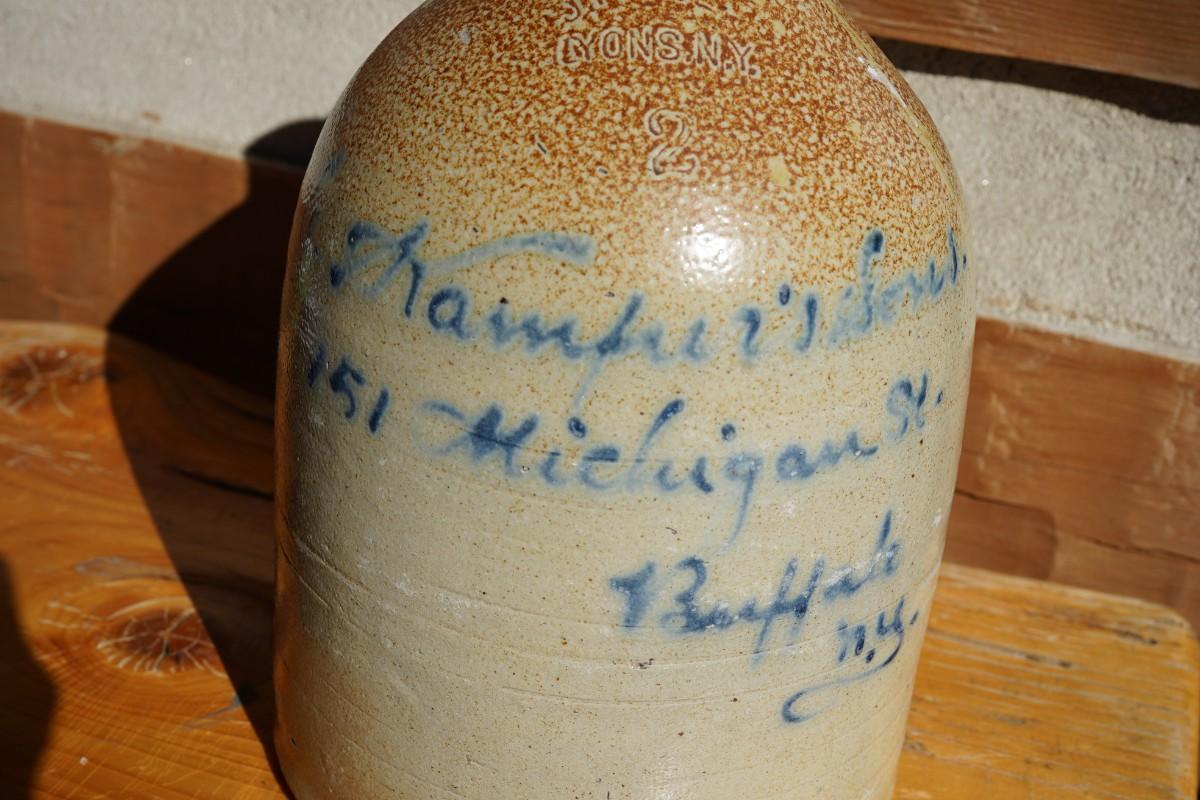 LYONS.N.Y.
2
Kampur's Sons.
151 Michigan St.
Buffalo
n.y.